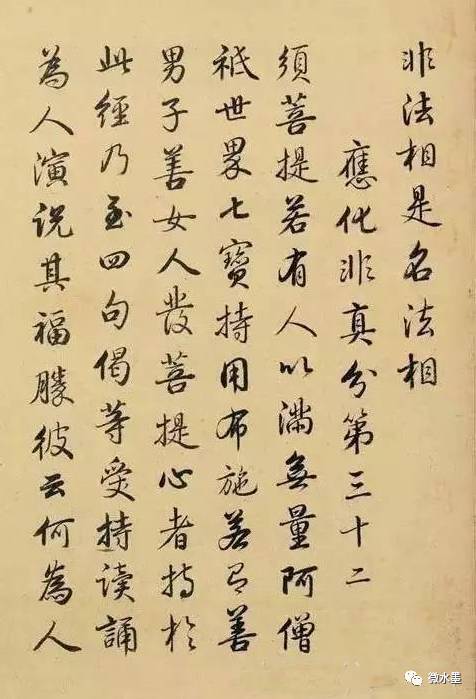 非法相是名法相
應化非真分第三十二
須菩提若有人以滿無量阿僧
祇世界七寶持用布施若有善
男子善女人發菩提心者持於
此經乃至四句偈等受持读誦
為人演说其福勝彼云何為人
微水墨